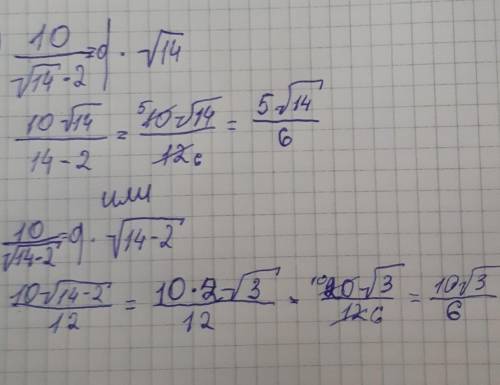 10/(√14 - 2) = q · √14
10√14/(14 - 2) = 10√14/12 = 5√14/6
или
10/√(14-2) = q · √(14-2)
10√(14-2)/12 = 10·2√3/12 = 20√3/12 = 10√3/6